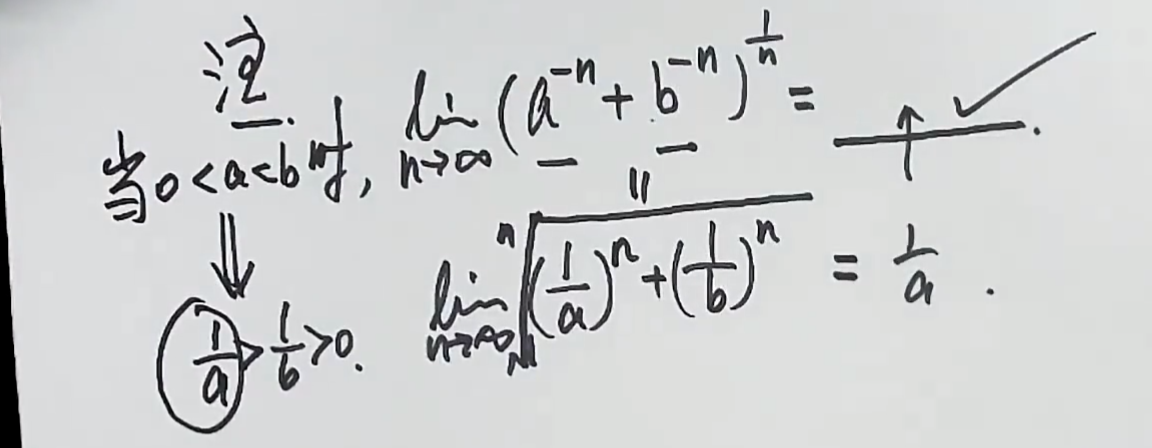 注
当 0<a<b 时, lim_{n→∞} (a^{-n} + b^{-n})^{1/n} = ____.
⇓ ॥ ↑ ✓
1/a > 1/b > 0. lim_{n→∞} ⁿ√((1/a)^n + (1/b)^n) = 1/a .